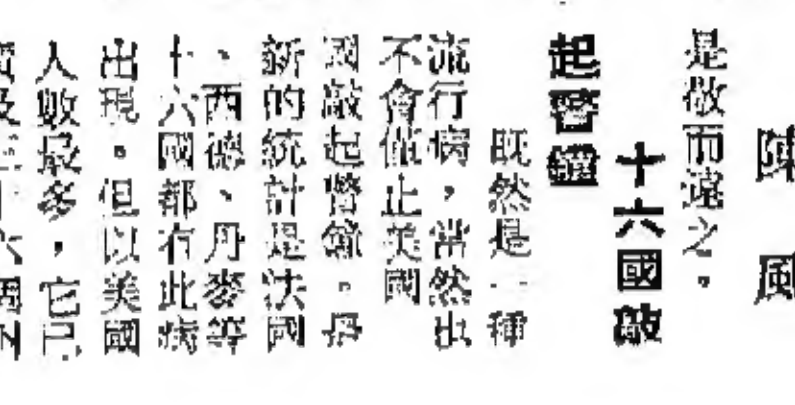 陳風
是敬而遠之。
十六國敲
起警鐘
既然是一種
流行病，當然也
不會僅止美國
國敲起警鐘。最
新的統計是法國
、西德、丹麥等
十六國都有此病
出現。但以美國
人數最多，它已
及三十六個州